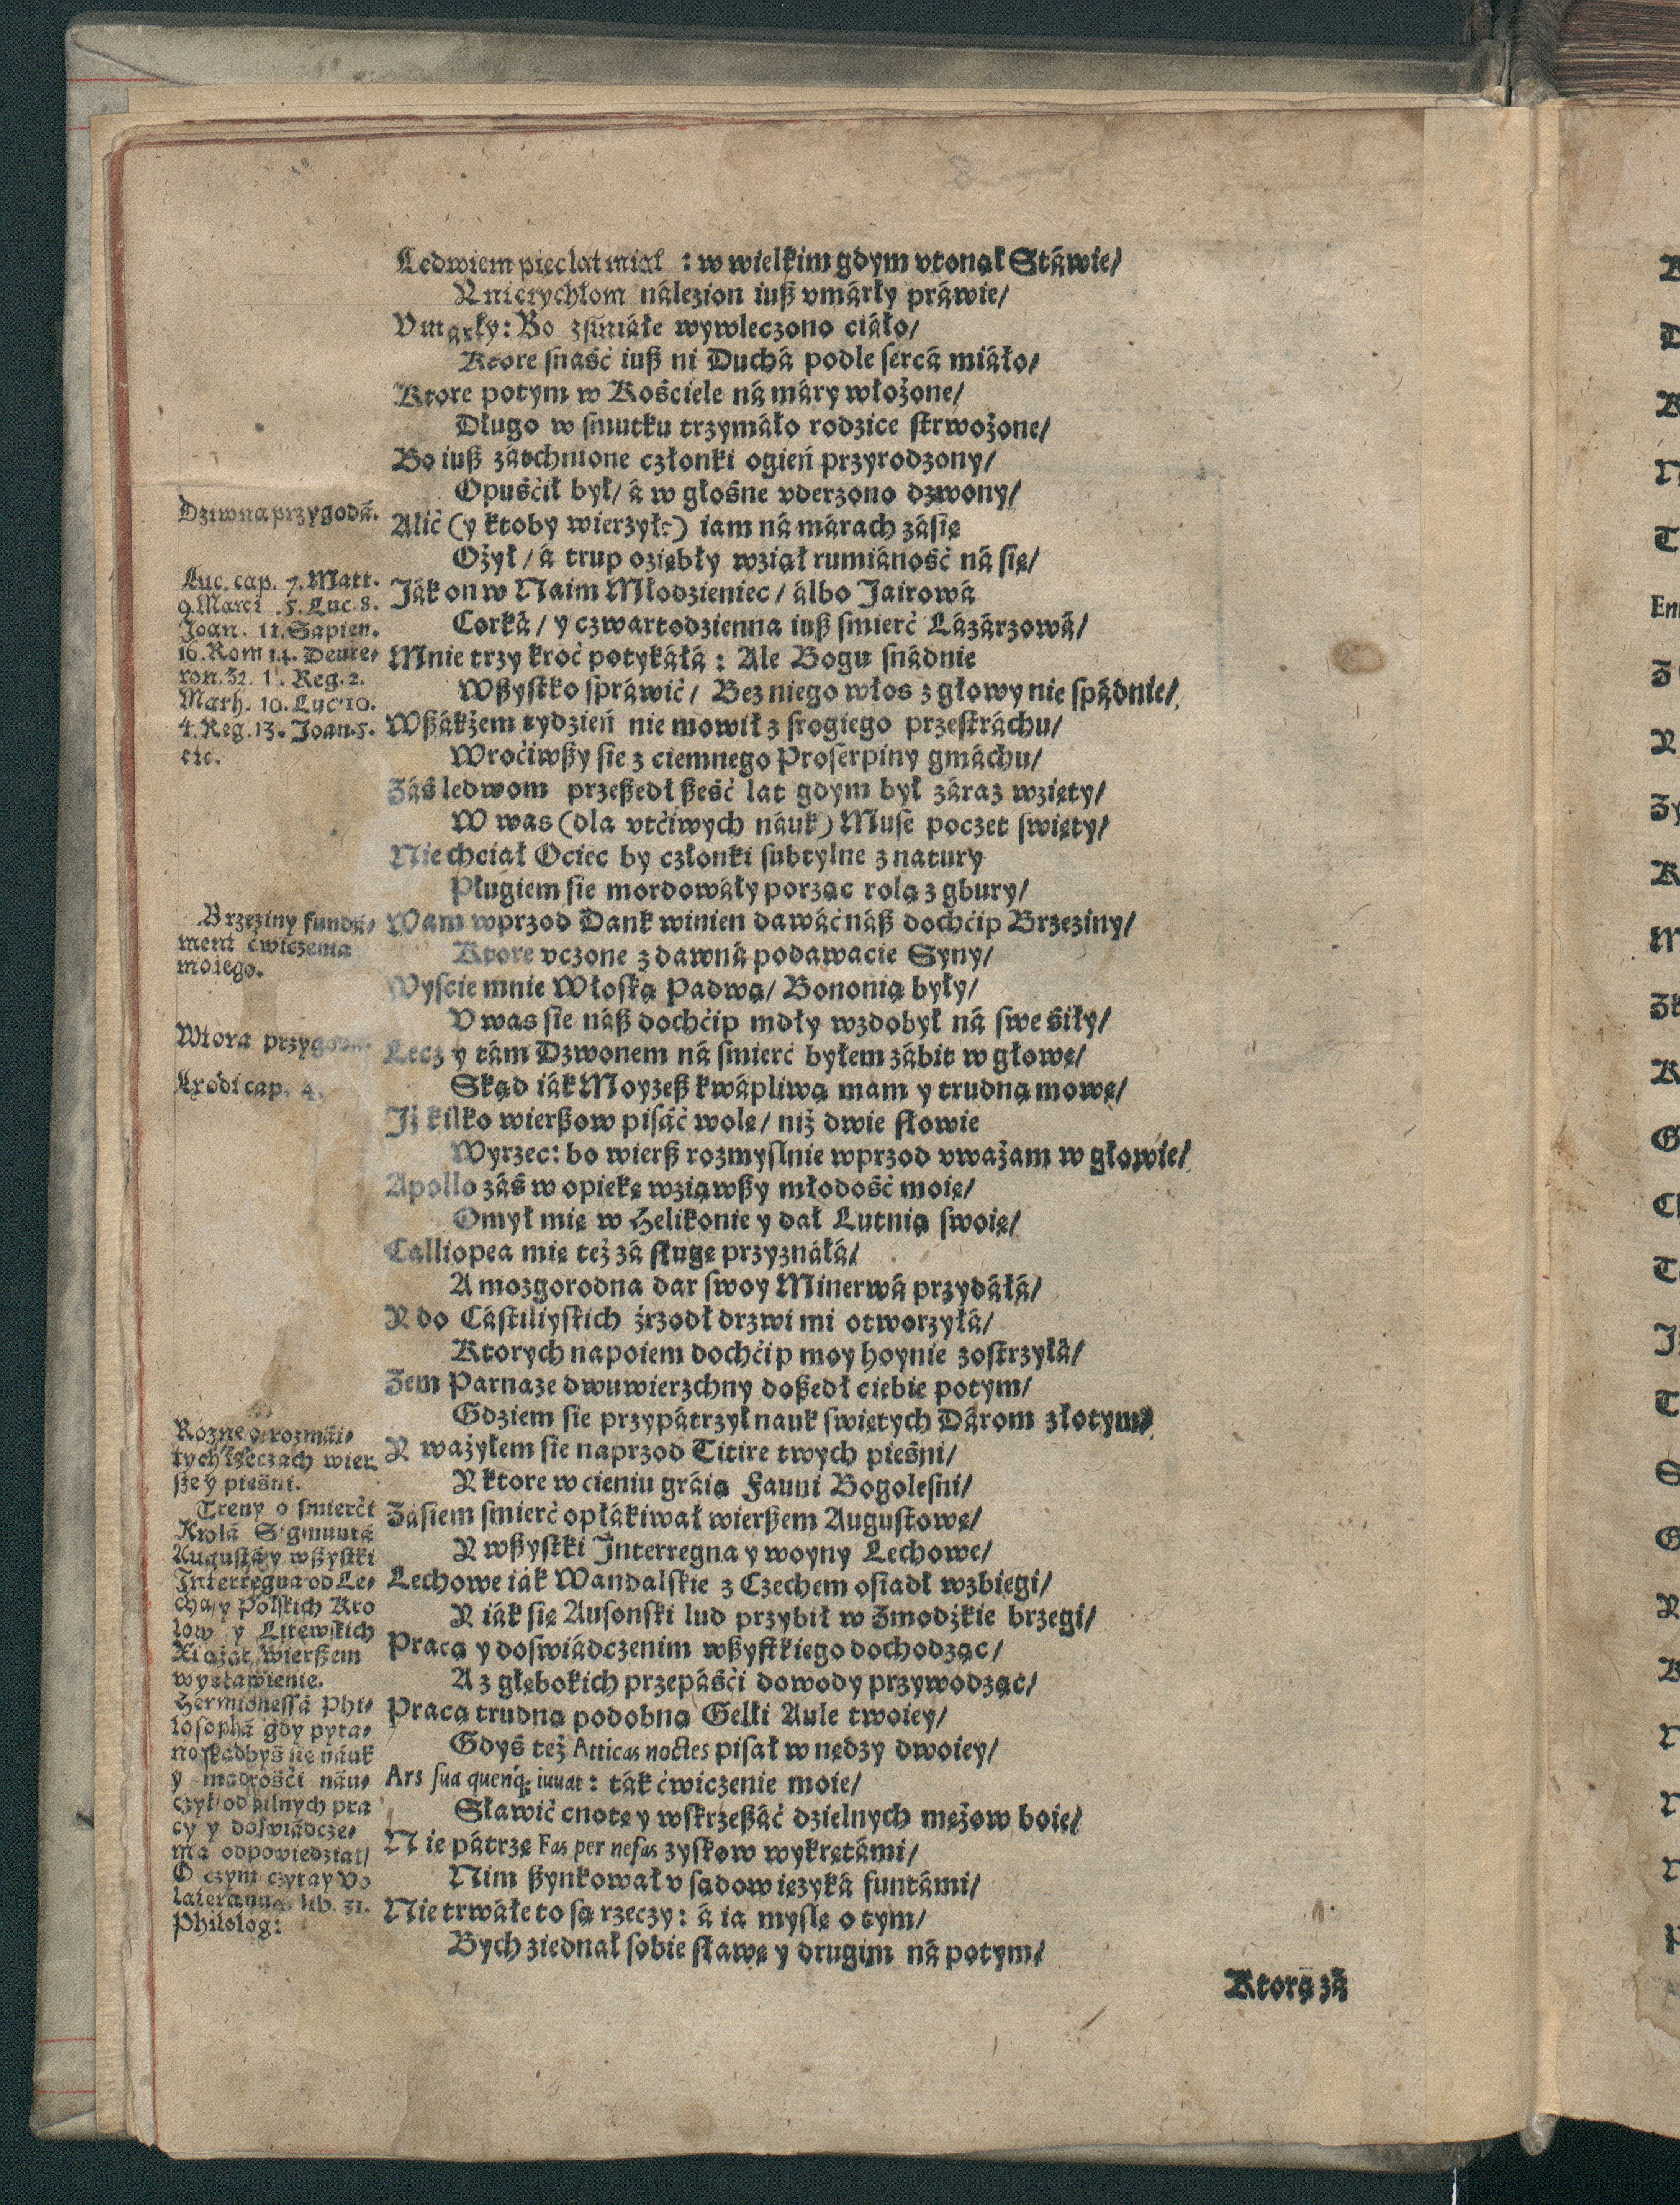 Ledwiem pięć lat miał : w wielkim gdym vtonął Stáwie/
Y nierychłom nálezion iuß vmárły práwie/
Vmarły: Bo zśiniáłe wywleczono ciáło/
Ktore snaść iuß ni Duchá podle sercá miáło/
Ktore potym w Kościele ná máry włożone/
Długo w smutku trzymáło rodzice strwożone/
Bo iuß zátchnione członki ogień przyrodzony/
Opuścił był/ á w głośne vderzono dzwony/
Alić (y ktoby wierzył?) iam ná márach zásię
Ożył/ á trup oziębły wziął rumiáność ná się/
Ják on w Naim Młodzieniec/ álbo Jairowá
Corká/ y czwartodzienna iuß smierć Lázárzowá/
Mnie trzy kroć potykáłá : Ale Bogu snádnie
Wßystko spráwić/ Bez niego włos z głowy nie spádnie/
Wßákżem tydzień nie mowił z srogiego przestráchu/
Wroćiwßy sie z ciemnego Proserpiny gmáchu/
Záś ledwom przeßedł ßeść lat gdym był záraz wzięty/
W was (dla vtćiwych náuk) Muse poczet swięty/
Nie chciał Ociec by członki subtylne z natury
Pługiem sie mordowáły porząc rolą z gbury/
Wam wprzod Dank winien dawáć náß dochćip Brzeziny/
Ktore vczone z dawná podawacie Syny/
Wyscie mnie Włoską Padwą/ Bononią były/
V was sie náß dochćip mdły wzdobył ná swe śiły/
Lecz y tám Dzwonem ná smierć byłem zábit w głowę/
Skąd iák Moyzeß kwápliwą mam y trudną mowę/
Iż kilko wierßow pisáć wolę/ niż dwie słowie
Wyrzec: bo wierß rozmyslnie wprzod vważam w głowie/
Apollo záś w opiekę wziąwßy młodość moię/
Omył mię w Helikonie y dał Lutnią swoię/
Calliopea mię też zá sługę przyznáłá/
A mozgorodna dar swoy Minerwá przydáłá/
Y do Cástiliyskich źrzodł drzwi mi otworzyłá/
Ktorych napoiem dochćip moy hoynie zostrzyłá/
Żem Parnaze dwuwierzchny doßedł ciebie potym/
Gdziem sie przypátrzył nauk swiętych Dárom złotym/
Y ważyłem sie naprzod Titire twych pieśni/
Y ktore w cieniu gráią Fauni Bogolesni/
Zásiem smierć opłákiwał wierßem Augustowę/
Y wßystki Interregna y woyny Lechowe/
Lechowe iák Wandalskie z Czechem osiadł wzbiegi/
Y iák się Ausonski lud przybił w Żmodźkie brzegi/
Pracą y doswiádczenim wßystkiego dochodząc/
A z głębokich przepáśći dowody przywodząc/
Pracą trudną podobną Gelli Aule twoiey/
Gdyś też Atticas noctes pisał w nędzy dwoiey/
Ars sua quenq; iuuat : ták ćwiczenie moie/
Sławić cnotę y wskrzeßáć dzielnych mężow boie/
Nie pátrzę Fas per nefas zyskow wykrętámi/
Nim ßynkował v sądow ięzyká funtámi/
Nie trwáłe to są rzeczy : á ia myslę o tym/
Bych ziednał sobie sławę y drugim ná potym/
Ktorą zá
Dziwna przygodá.
Luc. cap. 7. Matt.
9. Marci . 5. Luc. 8.
Joan. 11. Sapien.
16. Rom 14. Deute/
ron. 32. 1. Reg. 2.
Math. 10. Luc. 10.
4. Reg. 13. Joan. 5.
etc.
Brzeziny fundá/
ment ćwiczenia
moiego.
Wtora przygoda
Exodi cap. 4.
Rożne o rozmái/
tych rzeczach wier
sze y pieśni.
Treny o smierći
Krolá Sigmuntá
Augustá/ y wßystki
Interregna od Le/
chá/ y Polskich Kro
low y Litewskich
Xiążąt, wierßem
wystawienie.
Hermionessá Phi/
losophá gdy pyta/
no skądbyś się náuk
y mądrośći náu/
czył/ od pilnych pra
cy y doswiádcze/
nia odpowiedział/
O czym czytay Vo
lateranum lib. 31.
Philolog: